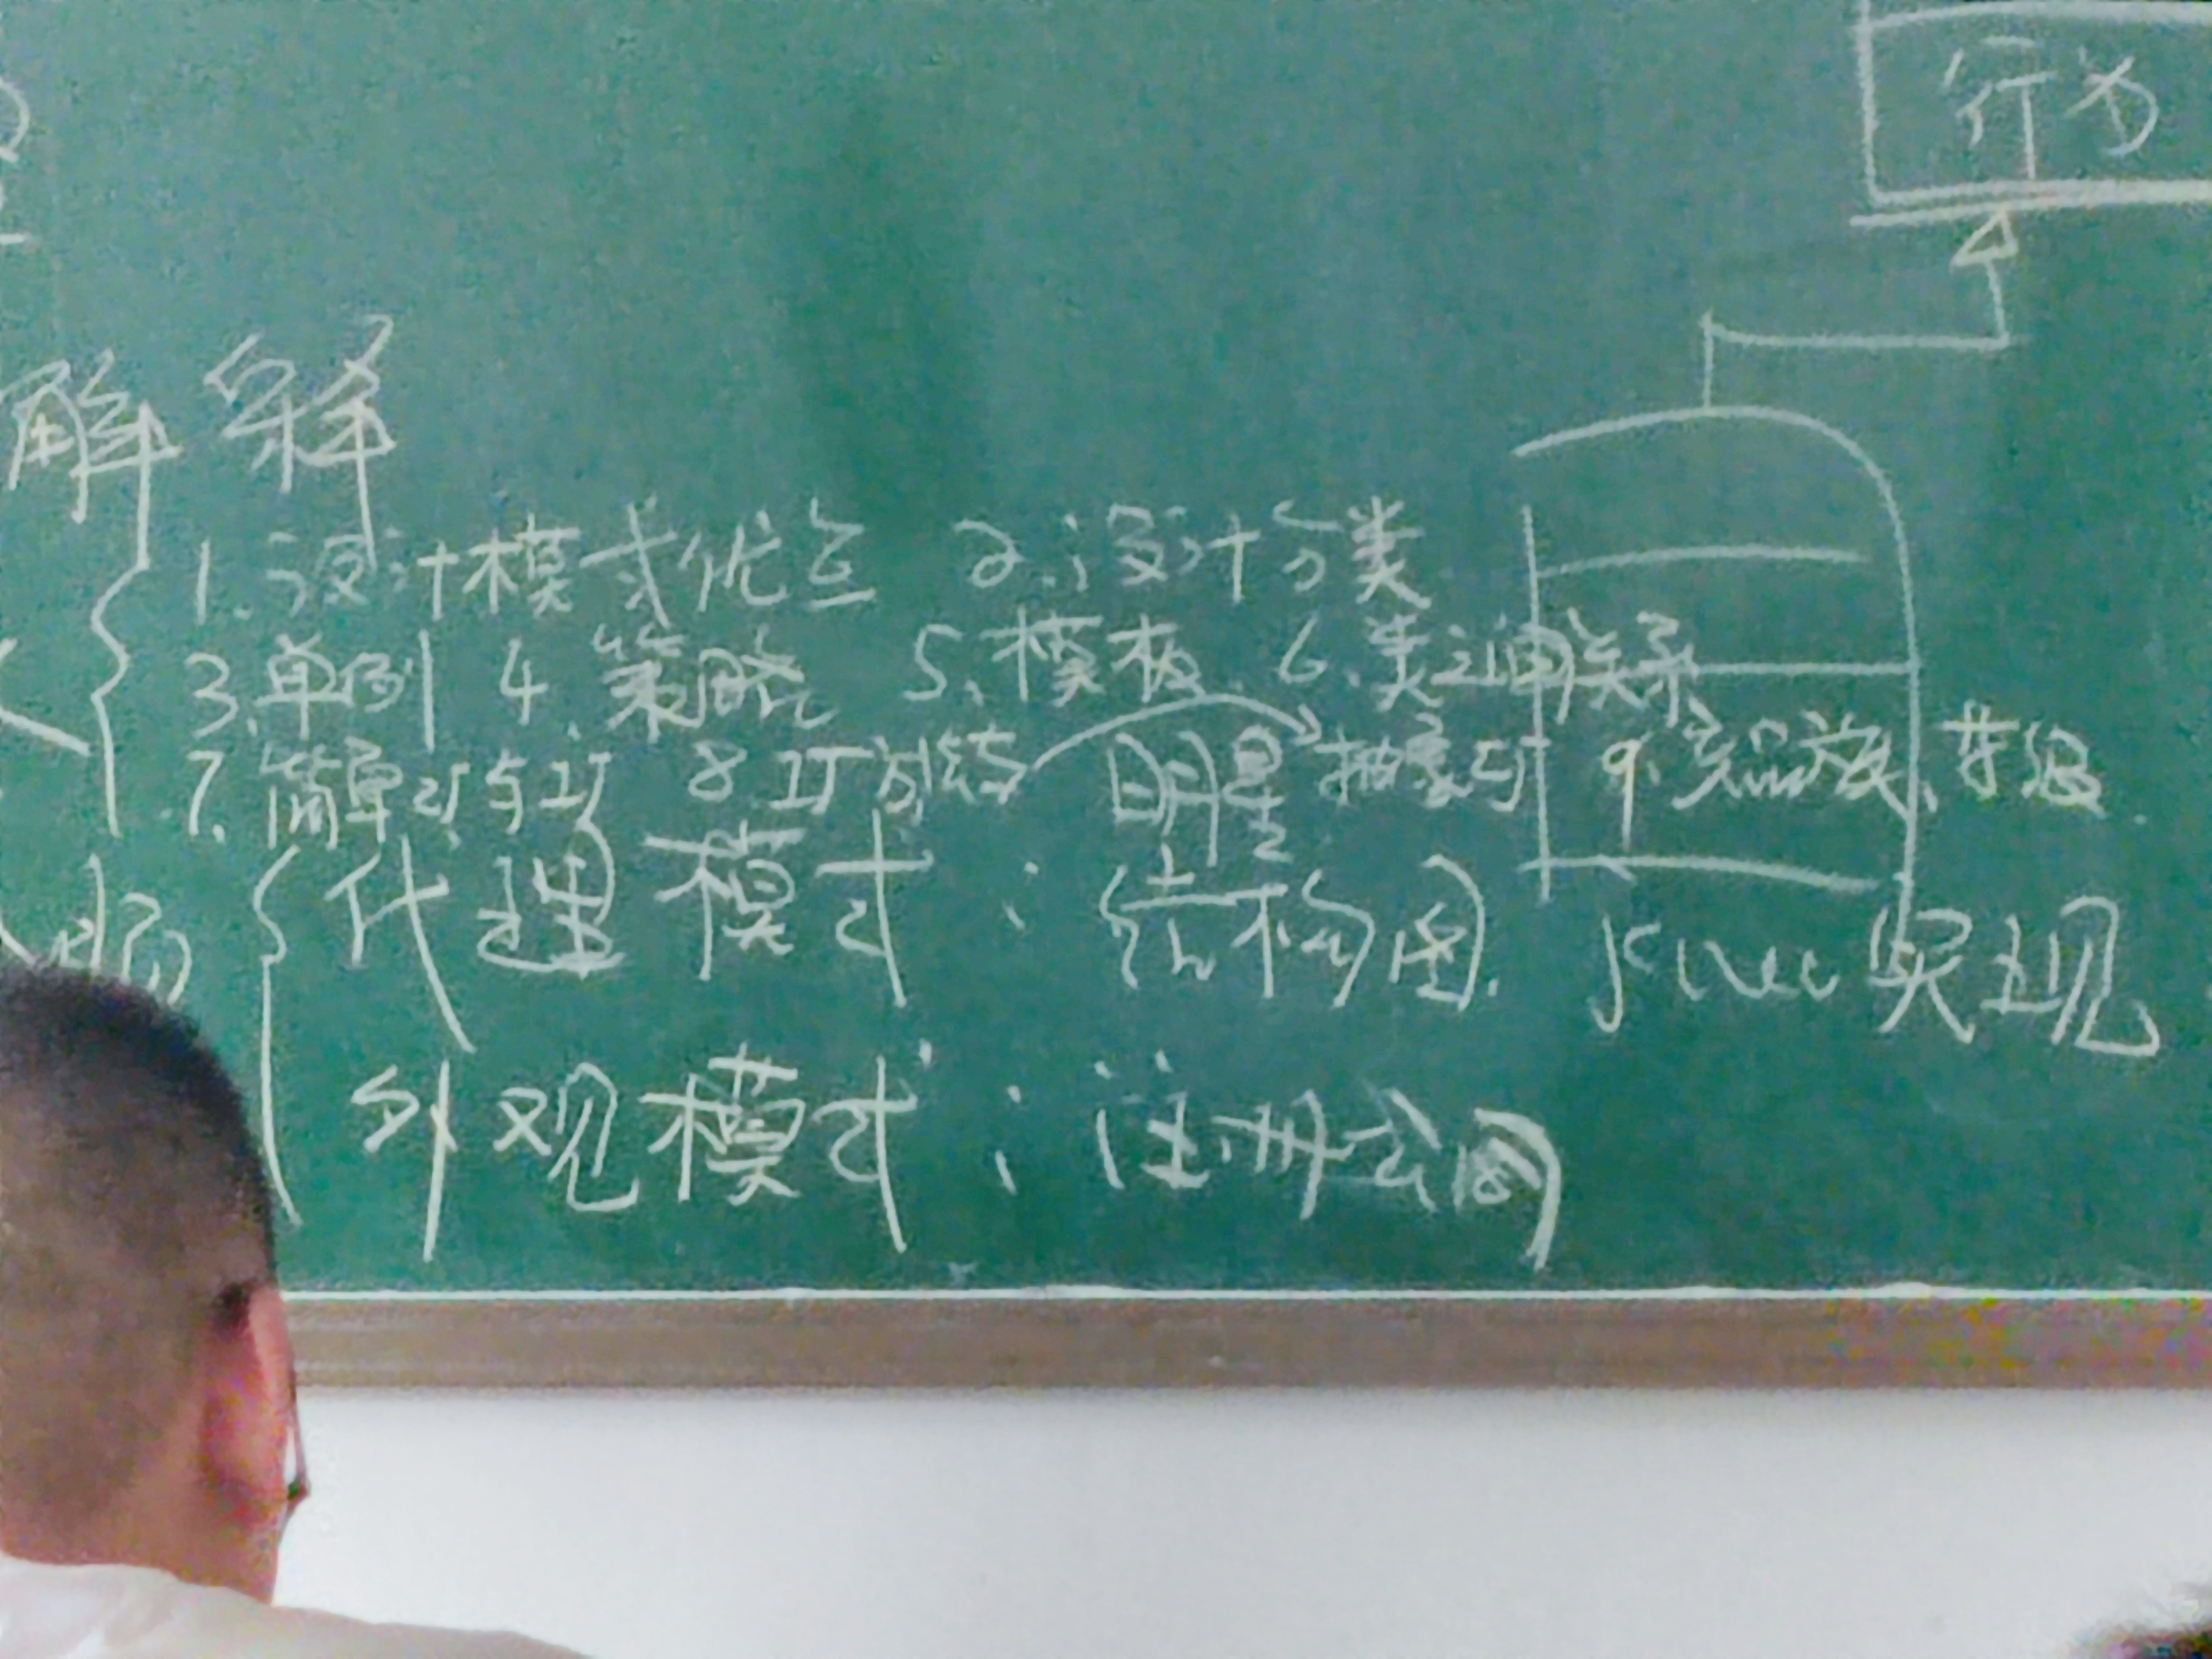 行为
解释
1.设计模式优点 2.设计分类
3.单例 4.策略 5.模板 6.类之间关系
7.简单工厂与工厂 8.工厂 明星 抽象工厂 9.产品族、等级
代理模式:结构图. 实现
外观模式:注册公司